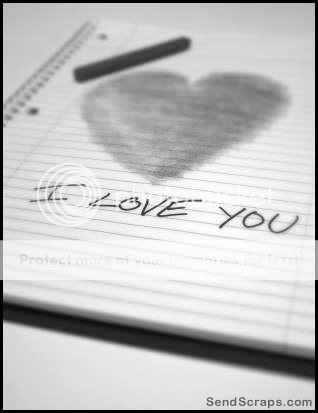 I LOVE YOU
Protect more of your memories for less!
SendScraps.com